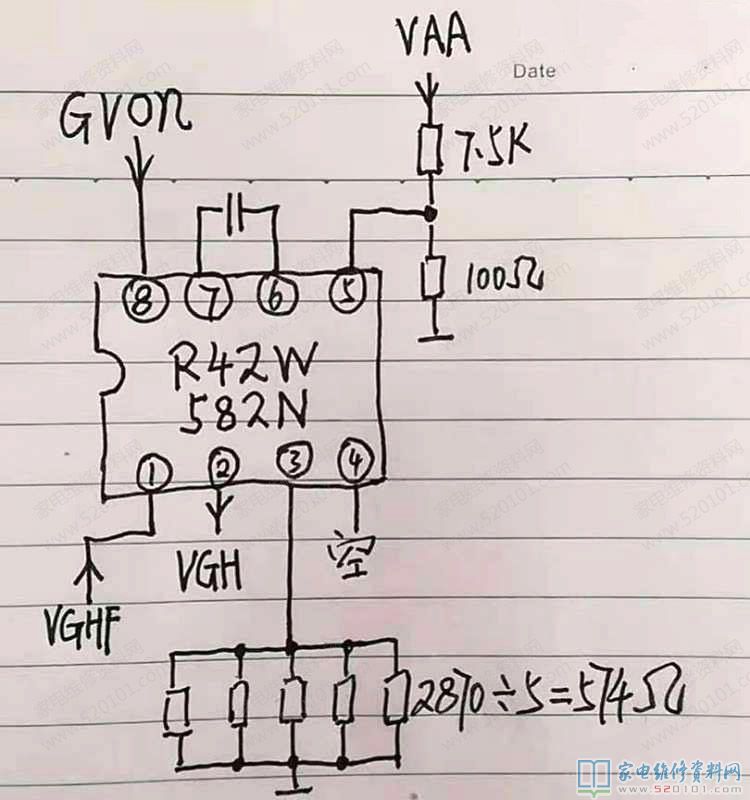 VAA
Date
GVON
7.5K
100Ω
⑧ ⑦ ⑥ ⑤
R42W
582N
① ② ③ ④
VGH
空
VGHF
2870÷5=574Ω
家电维修资料网
www.520101.com